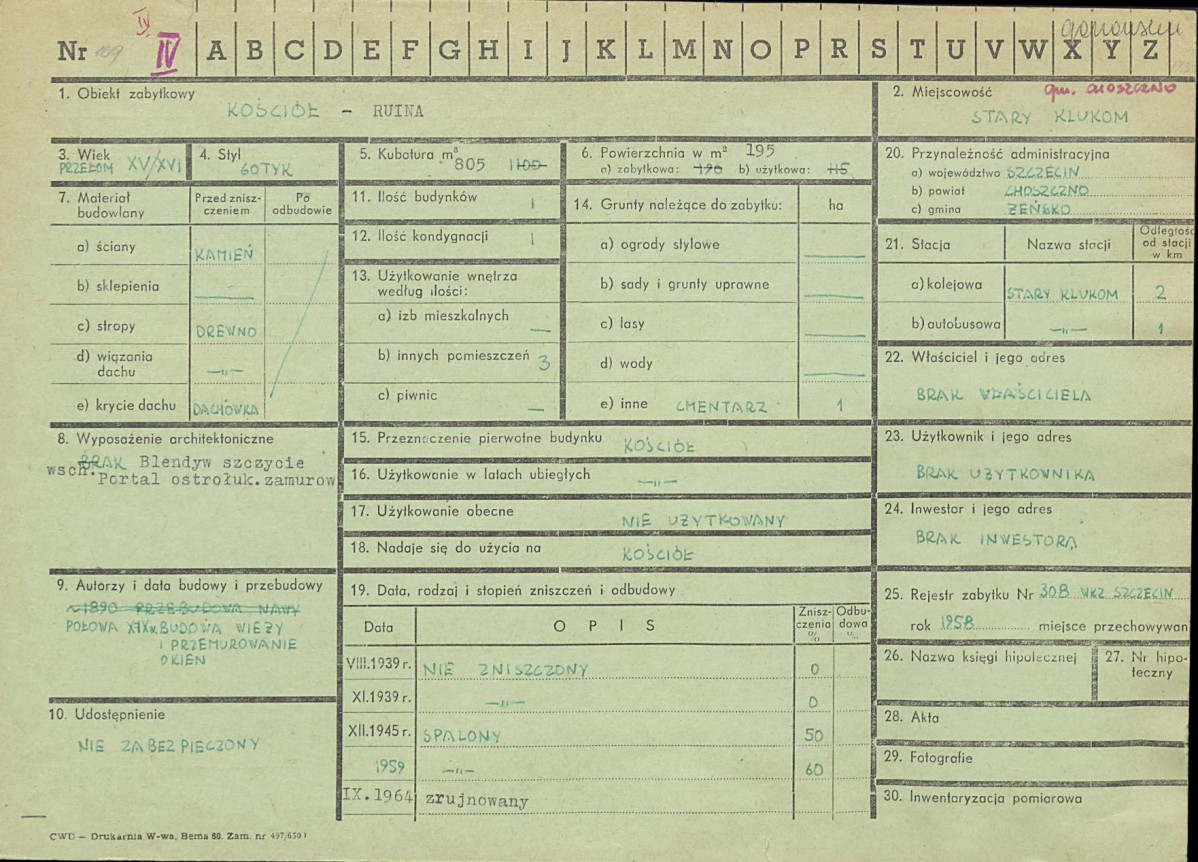 IV
Nr 109 IV A B C D E F G H I J K L M N O P R S T U V W X Y Z
1. Obiekt zabytkowy
KOŚCIÓŁ – RUINA
2. Miejscowość gm. CHOSZCZNO
STARY KLUKOM
3. Wiek
PRZEŁOM XV/XVI
4. Styl
GOTYK
5. Kubatura m³
805 1100
6. Powierzchnia w m² 195
a) zabytkowa: 190 b) użytkowa: 115
20. Przynależność administracyjna
a) województwo SZCZECIN
b) powiat CHOSZCZNO
c) gmina ZEŃSKO
7. Materiał budowlany
Przed znisz-
czeniem
Po
odbudowie
a) ściany KAMIEŃ
b) sklepienia —
c) stropy DREWNO
d) wiązania
dachu —„—
e) krycie dachu DACHÓWKA
11. Ilość budynków 1
12. Ilość kondygnacji 1
13. Użytkowanie wnętrza
według ilości:
a) izb mieszkalnych —
b) innych pomieszczeń 3
c) piwnic —
14. Grunty należące do zabytku: ha
a) ogrody stylowe —
b) sady i grunty uprawne —
c) lasy —
d) wody —
e) inne CMENTARZ 1
21. Stacja Nazwa stacji
Odległość
od stacji
w km
a) kolejowa STARY KLUKOM 2
b) autobusowa —„— 1
22. Właściciel i jego adres
BRAK WŁAŚCICIELA
8. Wyposażenie architektoniczne
BRAK Blendyw szczycie
wsch.
Portal ostrołuk.zamurow
15. Przeznaczenie pierwotne budynku KOŚCIÓŁ
16. Użytkowanie w latach ubiegłych —„—
17. Użytkowanie obecne NIE UŻYTKOWANY
18. Nadaje się do użycia na KOŚCIÓŁ
23. Użytkownik i jego adres
BRAK UŻYTKOWNIKA
24. Inwestor i jego adres
BRAK INWESTORA
9. Autorzy i data budowy i przebudowy
~1890 PRZEBUDOWA NAWY
POŁOWA XIXw. BUDOWA WIEŻY
I PRZEMUROWANIE
OKIEN
19. Data, rodzaj i stopień zniszczeń i odbudowy
Data OPIS
Znisz-
czenia
%
Odbu-
dowa
VIII.1939 r. NIE ZNISZCZONY 0
XI.1939 r. —„— 0
XII.1945 r. SPALONY 50
1959 —„— 60
IX.1964 zrujnowany
25. Rejestr zabytku Nr 308 WKZ SZCZECIN
rok 1958 miejsce przechowywan
26. Nazwa księgi hipotecznej
27. Nr hipo-
teczny
10. Udostępnienie
NIE ZABEZPIECZONY
28. Akta
29. Fotografie
30. Inwentaryzacja pomiarowa
CWD — Drukarnia W-wa, Bema 60. Zam. nr 497/650 1